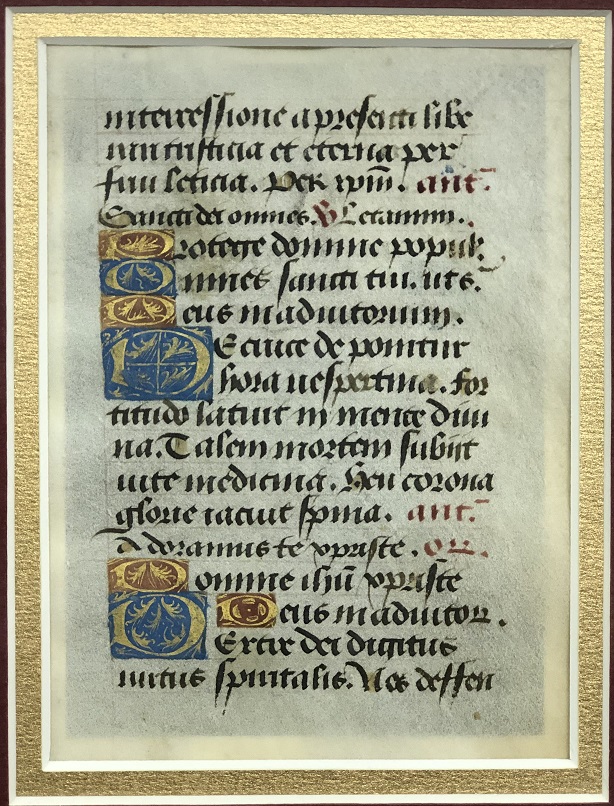 intercessione a presenti libe
rari tristicia et eterna per
frui leticia. Per xpm̄. ant̄.
Sancti dei omnes. ℟ Letamini.
Protege domine popul
Omnes sancti tui. uts.
Deus in adiutorium.
De cruce de ponitur
hora uespertina. For
titudo latuit in mente diui
na. Talem mortem subiit
uite medicina. Heu corona
glorie iacuit spina. ant̄.
Adoramus te xpriste. or.
Domine ihū xpriste
Deus in adiutor.
Dextre dei digitus
uirtus spiritalis. Nos deffen